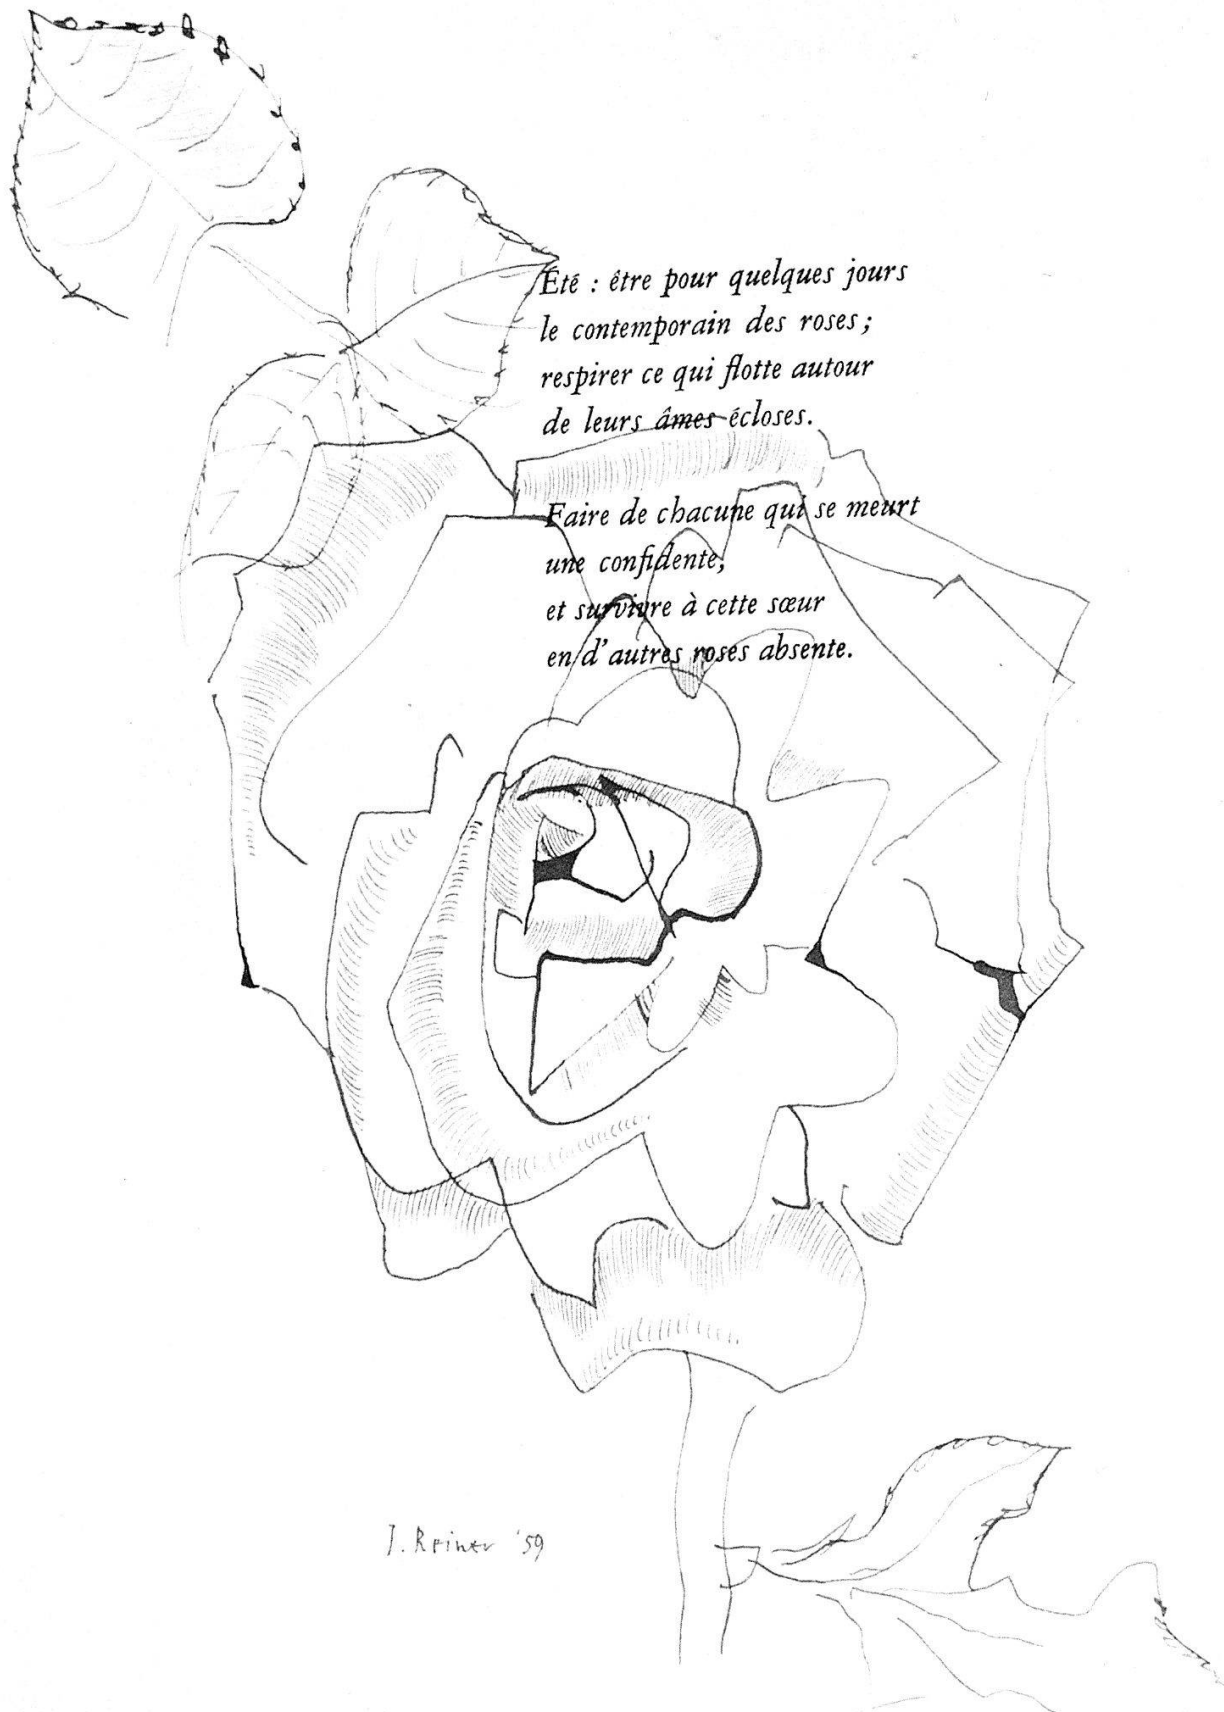 Été : être pour quelques jours
le contemporain des roses ;
respirer ce qui flotte autour
de leurs âmes écloses.
Faire de chacune qui se meurt
une confidente,
et survivre à cette sœur
en d'autres roses absente.
I. Reiner '59